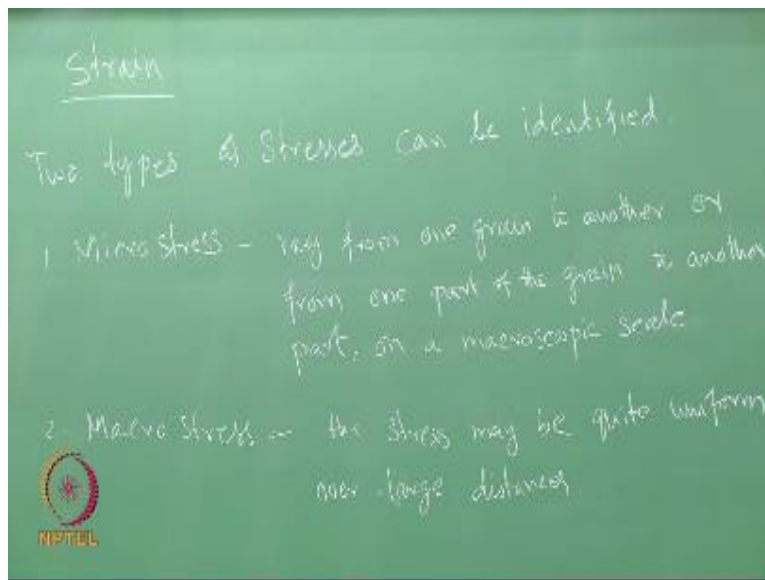 Strain
Two types of Stresses can be identified.
1 Micro stress - vary from one grain to another or
from one part of the grain to another
part, on a macroscopic scale
2 Macro stress - the stress may be quite uniform
over large distances
NPTEL